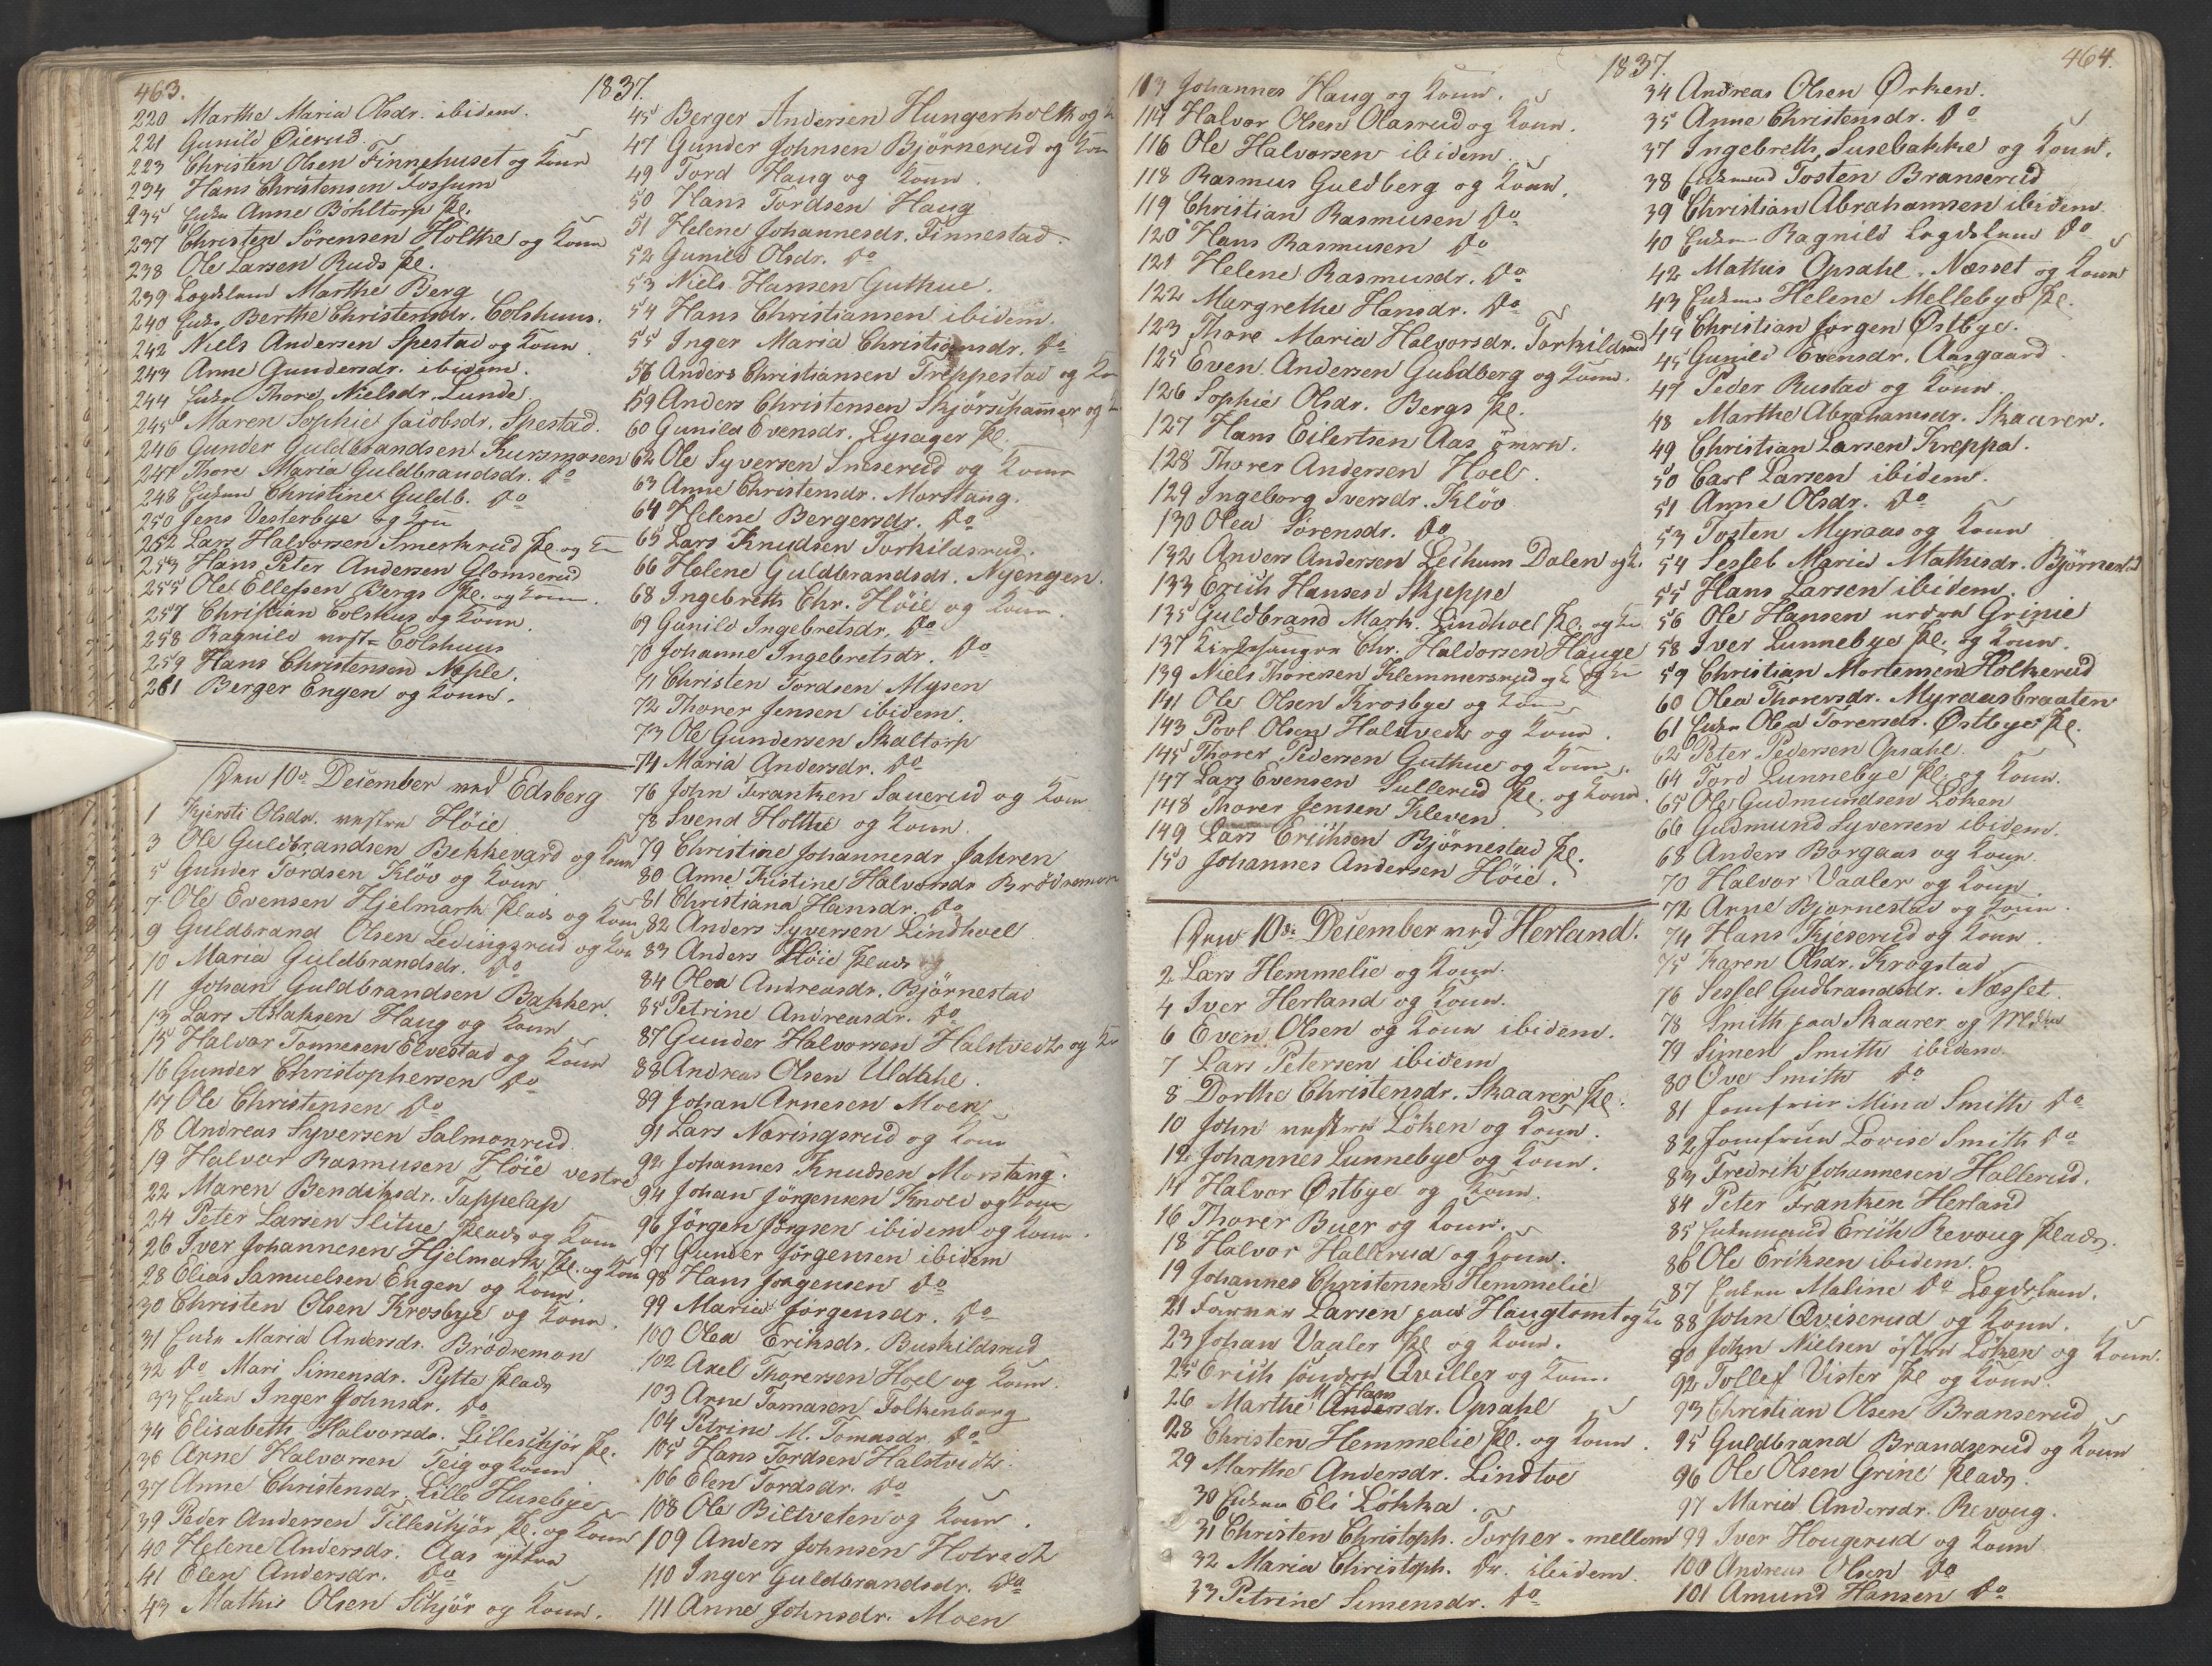 463.
1837.
220 Marthe Maria Olsdr. ibidem.
221 Gunild Øierud.
223 Christen Olsen Finnehuset og Kone
234 Hans Christensen Fossum
235 Enke Anne Bøhltorp Pl.
237 Christen Sørensen Holthe og Kone
238 Ole Larsen Ruds Pl.
239 Lægdslem Marthe Berg
240 Enke Berthe Christensdr. Colshuus.
242 Niels Andersen Spestad og Kone.
243 Anne Gundersdr. ibidem.
244 Enke Thore Nielsdr. Lunde.
245 Maren Sophie Jacobsdr. Spestad.
246 Gunder Guldbrandsen Kursmosen
247 Thore Maria Guldbrandsdr. do
248 Enken Christine Guldb. do
250 Jens Vesterbye og Kone
252 Lars Halvorsen Smerkerud Pl. og K
253 Hans Peter Andersen Glomserud
255 Ole Ellefsen Bergs Pl. og Kone.
257 Christian Colshus og Kone.
258 Ragnild Colshuus
259 Hans Christensen Næple.
261 Berger Engen og Kone.
Den 10de December ved Edsberg
1 Kjersti Olsdr. vestre Høie
3 Ole Guldbrandsen Bekkevard og Kone
5 Gunder Tordsen Kløv og Kone
7 Ole Evensen Hjelmark Plads og Kone
9 Guldbrand Olsen Ledingsrud og Kone
10 Maria Guldbrandsdr. do
11 Johan Guldbrandsen Bakker.
13 Lars Aslaksen Haug og Kone
15 Halvor Tonnesen Elvestad og Kone
16 Gunder Christophersen do
17 Ole Christensen do
18 Andreas Syversen Salmonrud
19 Halvor Rasmusen Høie vestre
22 Maren Bendiksdr. Tappelap
24 Peter Larsen Slitue Plads og Kone
26 Iver Johannesen Hjelmark Pl. og Kone
28 Elias Samuelsen Engen og Kone.
30 Christen Olsen Krosbye og Kone.
31 Enke Maria Andersdr. Brødremon
32 do Mari Simensdr. Pytte Plads
33 Enke Inger Johnsdr. do
34 Elisabeth Halvorsdr. Lilleschjør Pl.
36 Arne Halvorsen Teig og Kone
37 Anne Christensdr. Lille Husebye
39 Peder Andersen Tilleschjør Pl. og Kone
40 Helene Andersdr. Aas
41 Elen Andersdr. do
43 Mathis Olsen Schjør og Kone.
45 Berger Andersen Hungerholth og K
47 Gunder Johnsen Bjørnerud og Kone
49 Tord Haug og Kone.
50 Hans Tordsen Haug
51 Helene Johannesdr. Finnestad.
52 Gunild Olsdr. do
53 Niels Hansen Guthue.
54 Hans Christiansen ibidem.
55 Inger Maria Christiansdr. do
56 Anders Christiansen Treppestad og Kone
59 Anders Christensen Skjørschammer og K
60 Gunild Evensdr. Lysager Pl.
62 Ole Syversen Sneserud og Kone
63 Anne Christensdr. Morstang.
64 Helene Bergersdr. do
65 Lars Knudsen Torkildsrud.
66 Helene Guldbrandsdr. Nyengen.
68 Ingebreth Chr. Høie og Kone.
69 Gunild Ingebretsdr. do
70 Johanne Ingebretsdr. do
71 Christen Tordsen Mysen
72 Thorer Jensen ibidem.
73 Ole Gundersen Skaltorp
74 Maria Andersdr. do
76 John Frantzen Sauerud og Kone
78 Svend Holthe og Kone.
79 Christine Johannesdr Jahren
80 Anne Kistine Halvorsdr Brødremon
81 Christiana Hansdr. do
82 Anders Syversen Lindhoel
83 Anders Høie Plads
84 Olea Andreasdr. Bjørnestad
85 Petrine Andreasdr. do
87 Gunder Halvorsen Halstvedt og K
88 Andreas Olsen Uldahl.
89 Johan Arnesen Moen
91 Lars Næringsrud og Kone
92 Johannes Knudsen Morstang.
94 Johan Jørgensen Knold og Kone
96 Jørgen Jørgsen ibidem og Kone.
97 Gunder Jørgensen ibidem
98 Hans Jørgensen do
99 Maria Jørgensdr. do
100 Olea Eriksdr. Buskildsrud
102 Axel Thorersen Hoel og Kone.
103 Arne Tomasen Folkenborg
104 Petrine M. Tomasdr. do
105 Hans Tordsen Halstvedt.
106 Elen Tordsdr. do
108 Ole Biltveten og Kone.
109 Anders Johnsen Hotvedt
110 Inger Guldbrandsdr. do
111 Anne Johnsdr. Moen
1837.
464.
113 Johannes Haug og Kone.
114 Halvor Olsen Olasrud og Kone.
116 Ole Halvorsen ibidem.
118 Rasmus Guldberg og Kone.
119 Christian Rasmusen do
120 Hans Rasmusen do
121 Helene Rasmusdr. do
122 Margrethe Hansdr. do
123 Thore Maria Halvorsdr. Torkildsrud
125 Even Andersen Guldberg og Kone.
126 Sophie Olsdr. Bergs Pl.
127 Hans Eilertsen Aas
128 Thorer Andersen Hoel.
129 Ingeborg Iversdr. Kløv
130 Olea Sørensdr. do
132 Anders Andersen Lechum Dalen og K.
133 Erich Hansen Skjeppe
135 Guldbrand Mark. Lindhoel Pl. og K
137 Kirkesanger Chr. Haldorsen Hauge
139 Niels Thoresen Klemmersrud og K
141 Ole Olsen Krosbye og Kone
143 Povl Olsen Halstvedt og Kone.
145 Thorer Pedersen Guthue og Kone.
147 Lars Evensen Sullerud Pl. og Kone.
148 Thorer Jensen Kleven
149 Lars Erichsen Bjørnestad Pl.
150 Johannes Andersen Høie.
Den 10de December ved Herland.
2 Lars Hemmelie og Kone.
4 Iver Herland og Kone.
6 Even Olsen og Kone ibidem.
7 Lars Petersen ibidem
8 Dorthe Christensdr. Skaarer Pl.
10 John vestre Løken og Kone.
12 Johannes Lunnebye og Kone.
14 Halvor Østbye og Kone.
16 Thorer Buer og Kone.
18 Halvor Hallerud og Kone.
19 Johannes Christensen Hemmelie
21 Larsen paa Haugtomt og K
23 Johan Vaaler Pl og Kone.
25 Erich søndre Qviller og Kone.
26 Marthe M Hansdr. Opsahl
28 Christen Hemmelie Pl. og Kone.
29 Marthe Andersdr. Lindtoe
30 Enken Eli Løkka.
31 Christen Christoph. Torper - mellom
32 Maria Christoph. Dr. ibidem.
33 Petrine Simensdr. do
34 Andreas Olsen Ørken.
35 Anne Christensdr. do
37 Ingebreth Susebakke og Kone.
38 Enkemand Tosten Branserud
39 Christian Abrahamsen ibidem.
40 Enken Ragnild Lægdslem do
42 Mathis Opsahl Næsset og Kone
43 Enken Helene Mellebye Pl.
44 Christian Jørgen Østbye.
45 Gunild Evensdr. Aasgaard.
47 Peder Rustad og Kone.
48 Marthe Abrahamsdr. Skaarer.
49 Christian Larsen Kreppa.
50 Carl Larsen ibidem.
51 Anne Olsdr. do
53 Tosten Myraas og Kone
54 Sesseb Maria Mathisdr. Bjørnestad
55 Hans Larsen ibidem.
56 Ole Hansen nedre Grinie
58 Iver Lunnebye Pl. og Kone.
59 Christian Mortensen Holkerud
60 Olea Thorersdr. Myraasbraaten
61 Enke Olea Torersdr. Østbye Pl.
62 Peter Pedersen Opsahl.
64 Tord Lunnebye Pl og Kone.
65 Ole Gudmundsen Løken
66 Gudmund Syversen ibidem.
68 Anders Borgaas og Kone.
70 Halvor Vaaler og Kone.
72 Arne Bjørnestad og Kone.
74 Hans Kjeserud og Kone.
75 Karen Olsdr. Krogstad
76 Sessel Gudbrandsdr. Næsset.
78 Smith paa Skaarer og Mdme
79 Simen Smith ibidem.
80 Ove Smith do
81 Jomfrue Mina Smith do
82 Jomfrue Lovise Smith do
83 Fredrik Johannesen Hallerud.
84 Peter Frantzen Herland
85 Enkemand Erich Revoug Plads.
86 Ole Eriksen ibidem.
87 Enken Maline do Lægdslem.
88 John Qviserud og Kone.
90 John Nielsen østre Løken og Kone.
92 Tollef Vister Pl og Kone
93 Christian Olsen Branserud
95 Guldbrand Brandserud og Kone
96 Ole Olsen Grine Plads.
97 Maria Andersdr. Revoug.
99 Iver Hougerud og Kone
100 Andreas Olsen do
101 Amund Hansen do